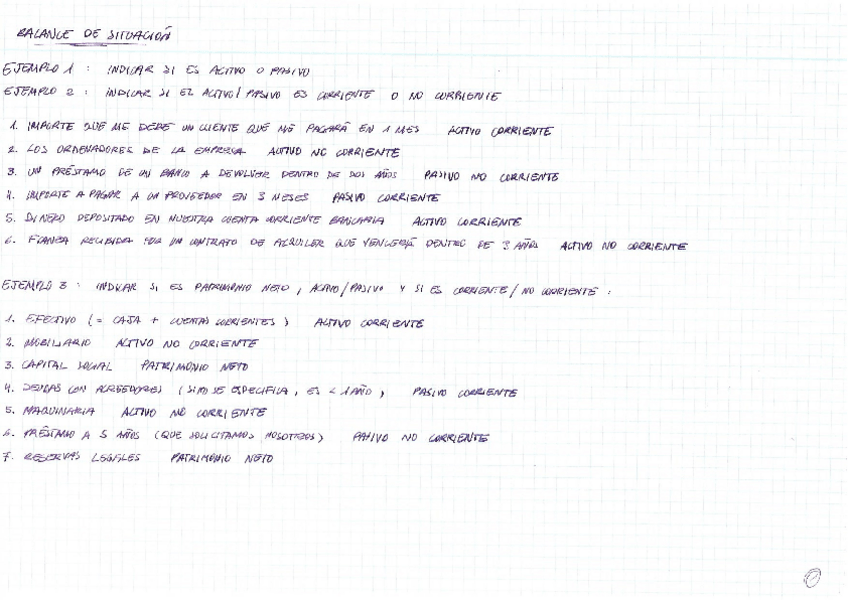 BALANCE DE SITUACIÓN
EJEMPLO 1 : INDICAR SI ES ACTIVO O PASIVO
EJEMPLO 2 : INDICAR SI EL ACTIVO/PASIVO ES CORRIENTE O NO CORRIENTE
1. IMPORTE QUE ME DEBE UN CLIENTE QUE ME PAGARÁ EN 1 MES ACTIVO CORRIENTE
2. LOS ORDENADORES DE LA EMPRESA ACTIVO NO CORRIENTE
3. UN PRÉSTAMO DE UN BANCO A DEVOLVER DENTRO DE DOS AÑOS PASIVO NO CORRIENTE
4. IMPORTE A PAGAR A UN PROVEEDOR EN 3 MESES PASIVO CORRIENTE
5. DINERO DEPOSITADO EN NUESTRA CUENTA CORRIENTE BANCARIA ACTIVO CORRIENTE
6. FIANZA RECIBIDA POR UN CONTRATO DE ALQUILER QUE VENCERÁ DENTRO DE 3 AÑOS ACTIVO NO CORRIENTE
EJEMPLO 3 : INDICAR SI ES PATRIMONIO NETO, ACTIVO/PASIVO Y SI ES CORRIENTE/NO CORRIENTE :
1. EFECTIVO (= CAJA + CUENTAS CORRIENTES) ACTIVO CORRIENTE
2. MOBILIARIO ACTIVO NO CORRIENTE
3. CAPITAL SOCIAL PATRIMONIO NETO
4. DEUDAS CON ACREEDORES (SI NO SE ESPECIFICA, ES < 1 AÑO) PASIVO CORRIENTE
5. MAQUINARIA ACTIVO NO CORRIENTE
6. PRÉSTAMO A 5 AÑOS (QUE SOLICITAMOS NOSOTROS) PASIVO NO CORRIENTE
7. RESERVAS LEGALES PATRIMONIO NETO